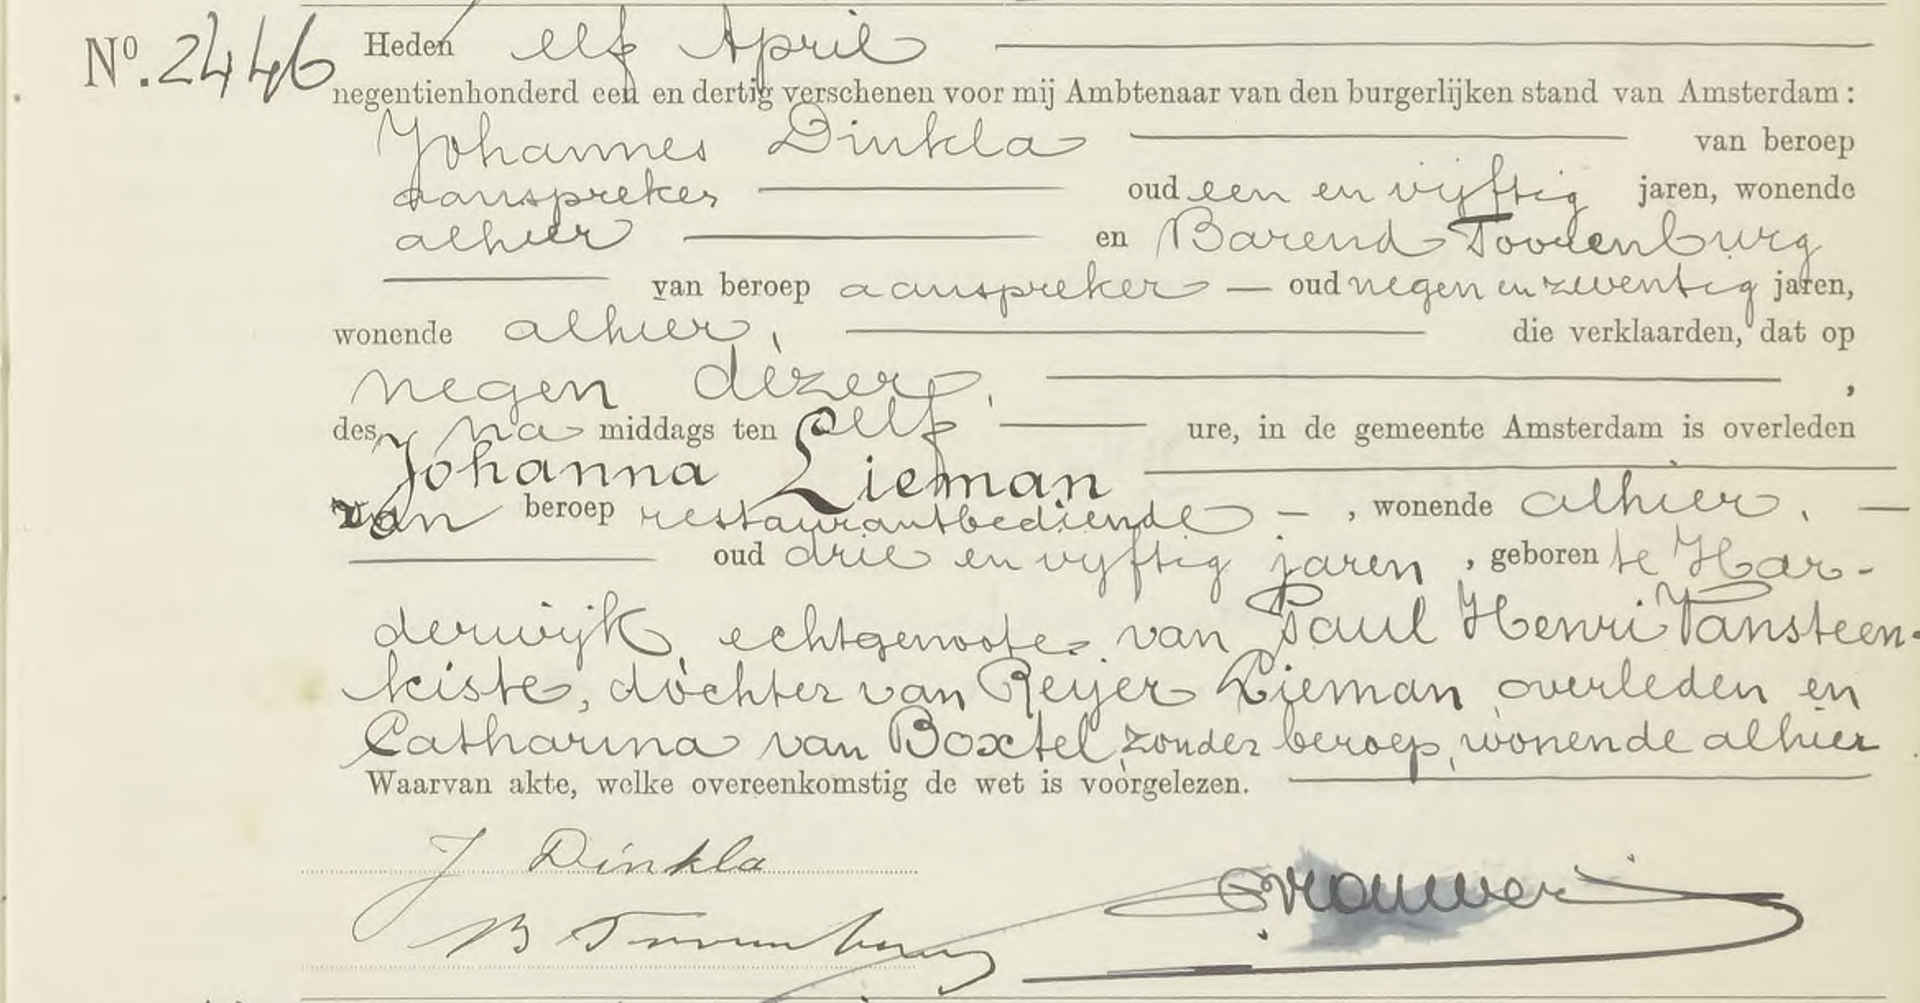 No. 2446 Heden elf April
negentienhonderd een en dertig verschenen voor mij Ambtenaar van den burgerlijken stand van Amsterdam:
Johannes Dinkla van beroep
aanspreker oud een en vijftig jaren, wonende
alhier en Barend Toorenburg
van beroep aanspreker oud negen en zeventig jaren,
wonende alhier, die verklaarden, dat op
negen dezer, ,
des na middags ten elf ure, in de gemeente Amsterdam is overleden
Johanna Lieman
van beroep restaurantbediende , wonende alhier,
oud drie en vijftig jaren , geboren te Har-
derwijk, echtgenoote van Paul Henri Vansteen-
kiste, dochter van Reijer Lieman, overleden en
Catharina van Boxtel, zonder beroep, wonende alhier.
Waarvan akte, welke overeenkomstig de wet is voorgelezen.
J Dinkla
B Toorenburg